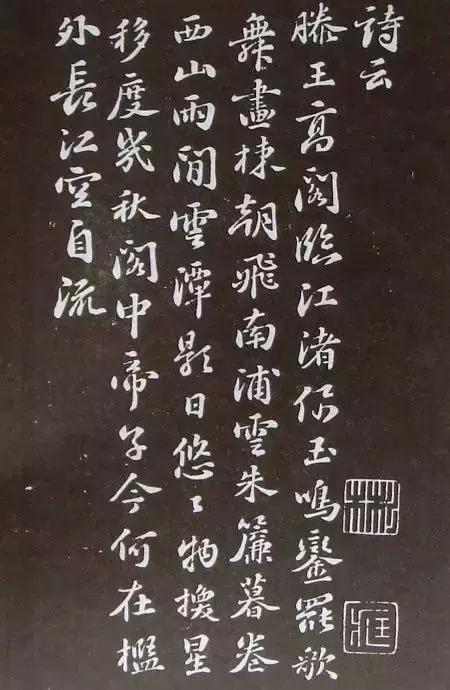 詩云
滕王高閣臨江渚佩玉鳴鑾罷歌
舞畫棟朝飛南浦雲朱簾暮卷
西山雨閒雲潭影日悠々物換星
移度幾秋閣中帝子今何在檻
外長江空自流